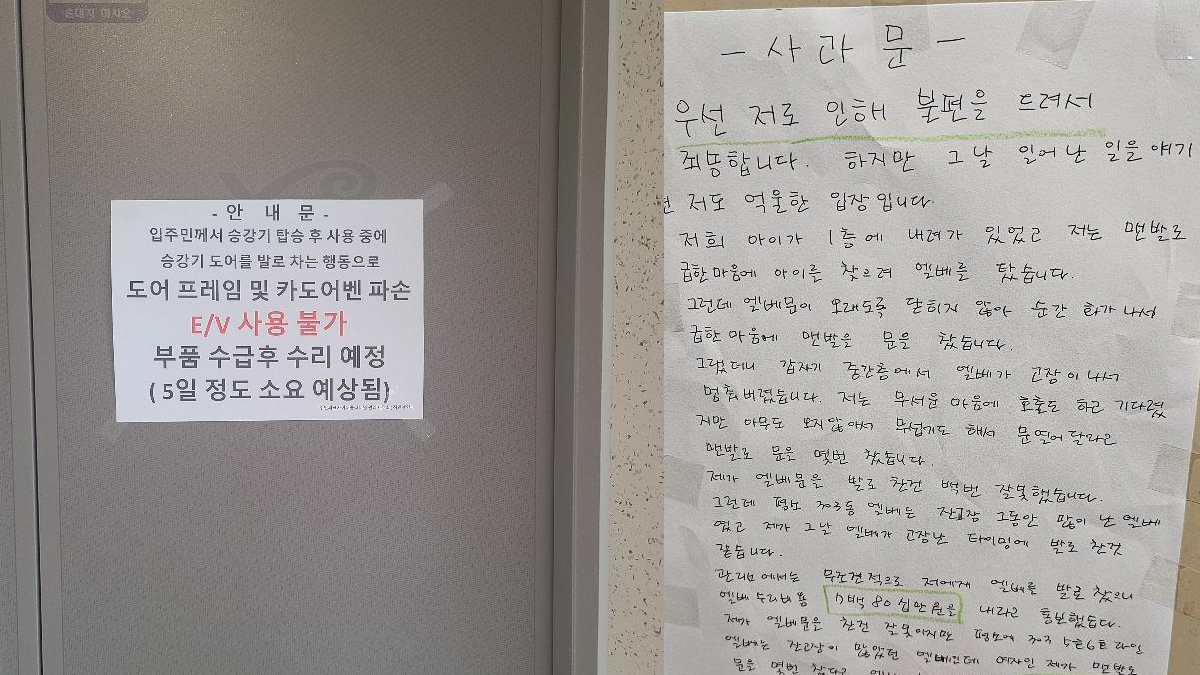 손대지 마시오
- 안 내 문 -
입주민께서 승강기 탑승 후 사용 중에
승강기 도어를 발로 차는 행동으로
도어 프레임 및 카도어벤 파손
E/V 사용 불가
부품 수급후 수리 예정
( 5일 정도 소요 예상됨)
- 사 과 문 -
우선 저로 인해 불편을 드려서
죄송합니다. 하지만 그 날 일어난 일을 얘기
저도 억울한 입장입니다.
저희 아이가 1층에 내려가 있었고 저는 맨발로
급한마음에 아이를 찾으려 엘베를 탔습니다.
그런데 엘베문이 오래도록 닫히지 않아 순간 화가 나서
급한 마음에 맨발을 문을 찼습니다.
그랬더니 갑자기 중간층에서 엘베가 고장이 나서
멈춰버렸습니다. 저는 무서운 마음에 호출도 하고 기다렸
지만 아무도 오지않아서 무섭기도 해서 문열어달라고
맨발로 문을 몇번 찼습니다.
제가 엘베문을 발로 찬건 백번 잘못했습니다.
그런데 평소 303동 엘베는 잔고장 그동안 많이 난 엘베
였고 제가 그날 엘베가 고장난 타이밍에 발로 찬것
같습니다.
관리소에서는 무조건적으로 저에게 엘베를 발로 찼으니
엘베수리비용 7백 80 십만원을 내라고 통보했습니다.
제가 엘베문을 찬건 잘못이지만 평소에 303 5호6호라인
엘베는 잔고장이 많았던 엘베인데 여자인 제가 맨발로
문을 몇번 찼다고